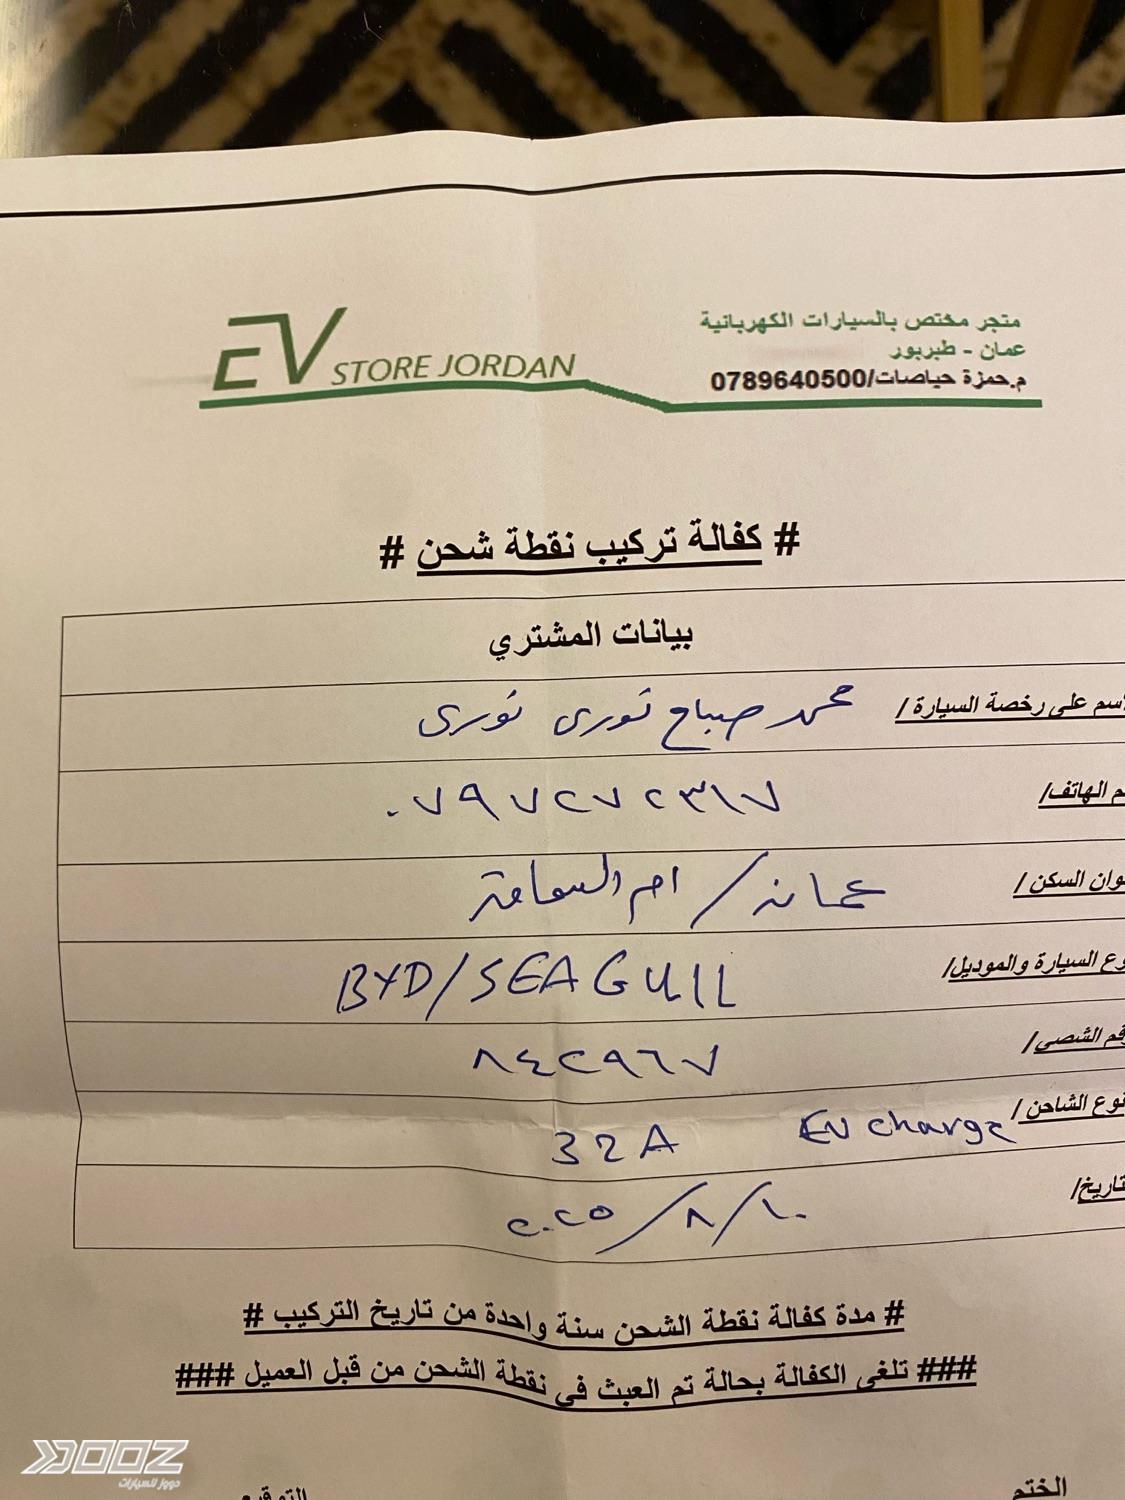 EV STORE JORDAN
متجر مختص بالسيارات الكهربائية
عمان - طبربور
م.حمزة حياصات/0789640500
# كفالة تركيب نقطة شحن #
بيانات المشتري
سم على رخصة السيارة / محمد صباح نوري نوري
م الهاتف/ ٠٧٩٧٢٧٢٣١٧
وان السكن / عمان / ام السماق
وع السيارة والموديل/ BYD/SEAGULL
قم الشصي/ ٨٤٢٩٦٧
نوع الشاحن / EV charge 32A
تاريخ/ ١٠/٨/٢٠٢٥
# مدة كفالة نقطة الشحن سنة واحدة من تاريخ التركيب #
### تلغى الكفالة بحالة تم العبث في نقطة الشحن من قبل العميل ###
الختم التوقيع
DOOZ
دووز للسيارات